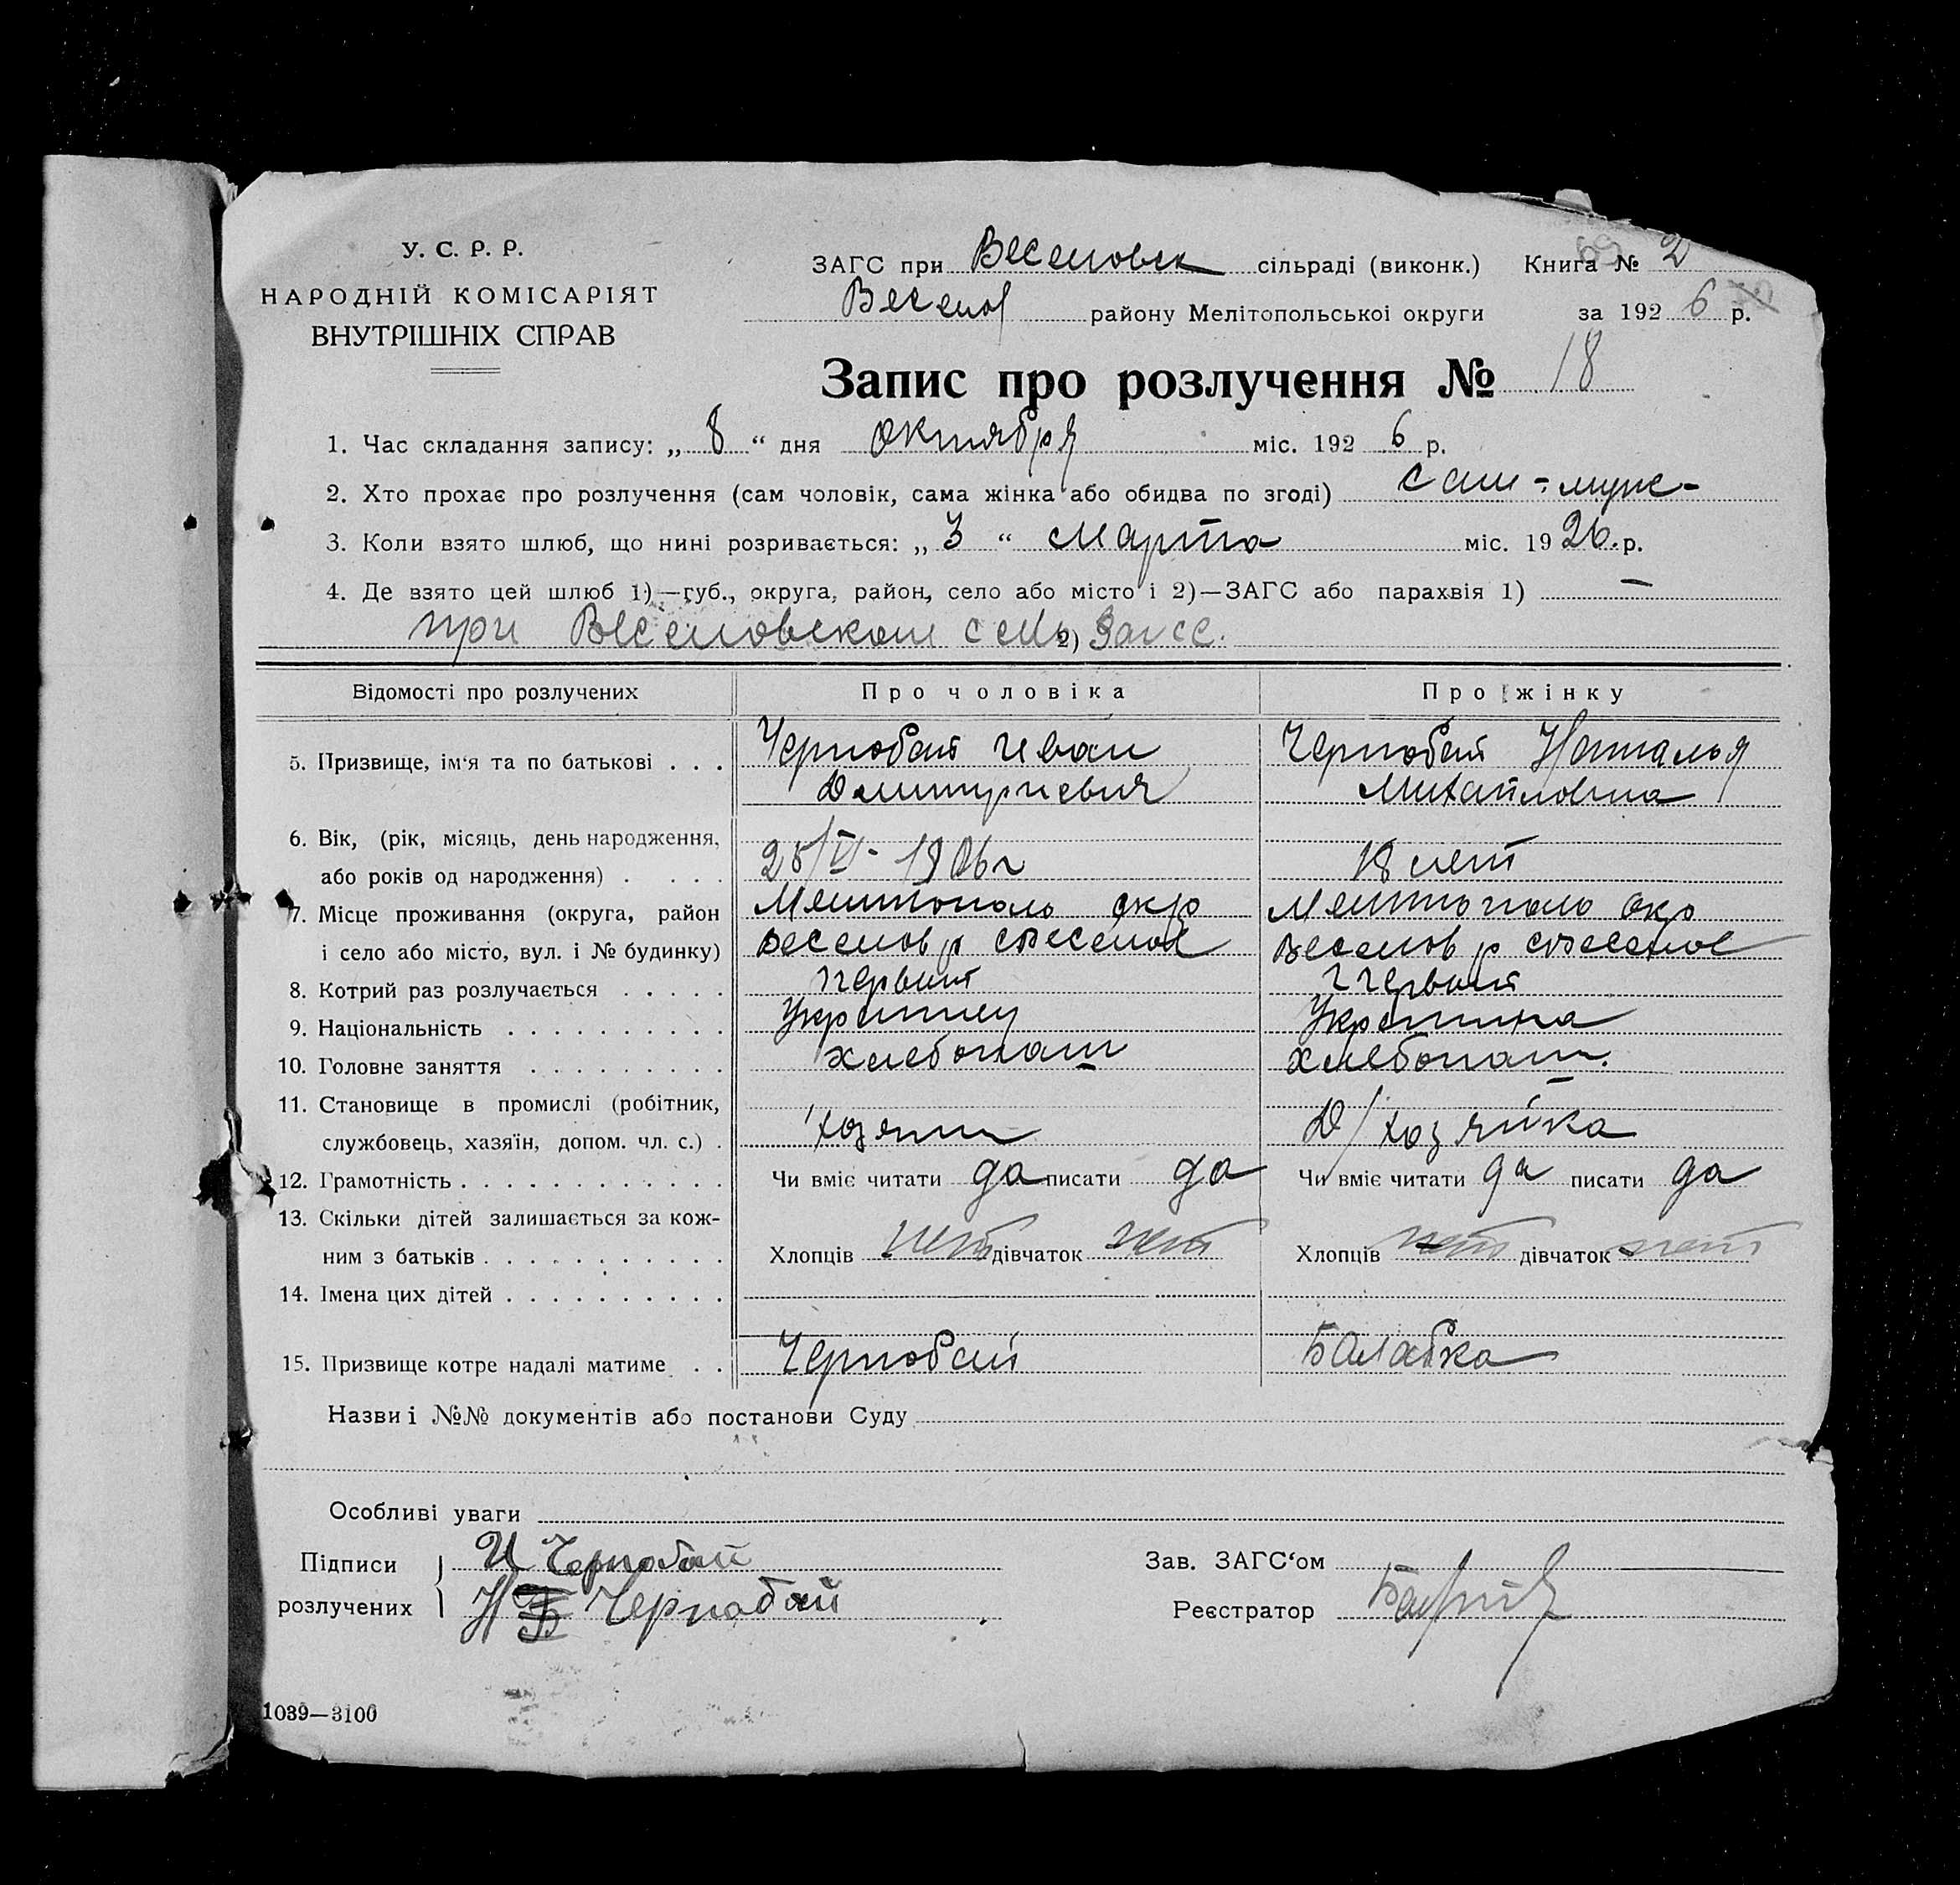 У. С. Р. Р.
НАРОДНІЙ КОМІСАРІЯТ
ВНУТРІШНІХ СПРАВ
ЗАГС при Веселовск сільраді (виконк.) Книга № 2
69
Веселов району Мелітопольської округи за 1926 р.
Запис про розлучення № 18
1. Час складання запису: „ 8 “ дня октября міс. 1926 р.
2. Хто прохає про розлучення (сам чоловік, сама жінка або обидва по згоді) сам - муж -
3. Коли взято шлюб, що нині розривається: „ 3 “ Марта міс. 1926. р.
4. Де взято цей шлюб 1)—губ., округа, район, село або місто і 2)—ЗАГС або парахвія 1) —
при Веселовском сель 2) Загсе.
Відомості про розлучених Про чоловіка Про жінку
5. Призвище, ім‘я та по батькові . . . Чернобай Иван Чернобай Наталья
Дмитриевич Михайловна
6. Вік, (рік, місяць, день народження,
або років од народження) . . . . 25/VI - 1906 г 18 лет
7. Місце проживання (округа, район Мелитополь окр Мелитополь окр
і село або місто, вул. і № будинку) Веселов р с Веселое Веселов р с Веселое
8. Котрий раз розлучається . . . . . первый первый
9. Національність . . . . . . . . . . Украинец Украинка
10. Головне заняття . . . . . . . . . хлебопаш хлебопаш.
11. Становище в промислі (робітник,
службовець, хазяїн, допом. чл. с.) . хозяин Д/хозяйка
12. Грамотність . . . . . . . . . . . . Чи вміє читати да писати да Чи вміє читати да писати да
13. Скільки дітей залишається за кож-
ним з батьків . . . . . . . . . . . Хлопців нет дівчаток нет Хлопців нет дівчаток нет
14. Імена цих дітей . . . . . . . . . .
15. Призвище котре надалі матиме . . Чернобай Балабка
Назви і №№ документів або постанови Суду
Особливі уваги
Підписи И Чернобай Зав. ЗАГС‘ом
розлучених Н Чернобай Реєстратор
1039—3100